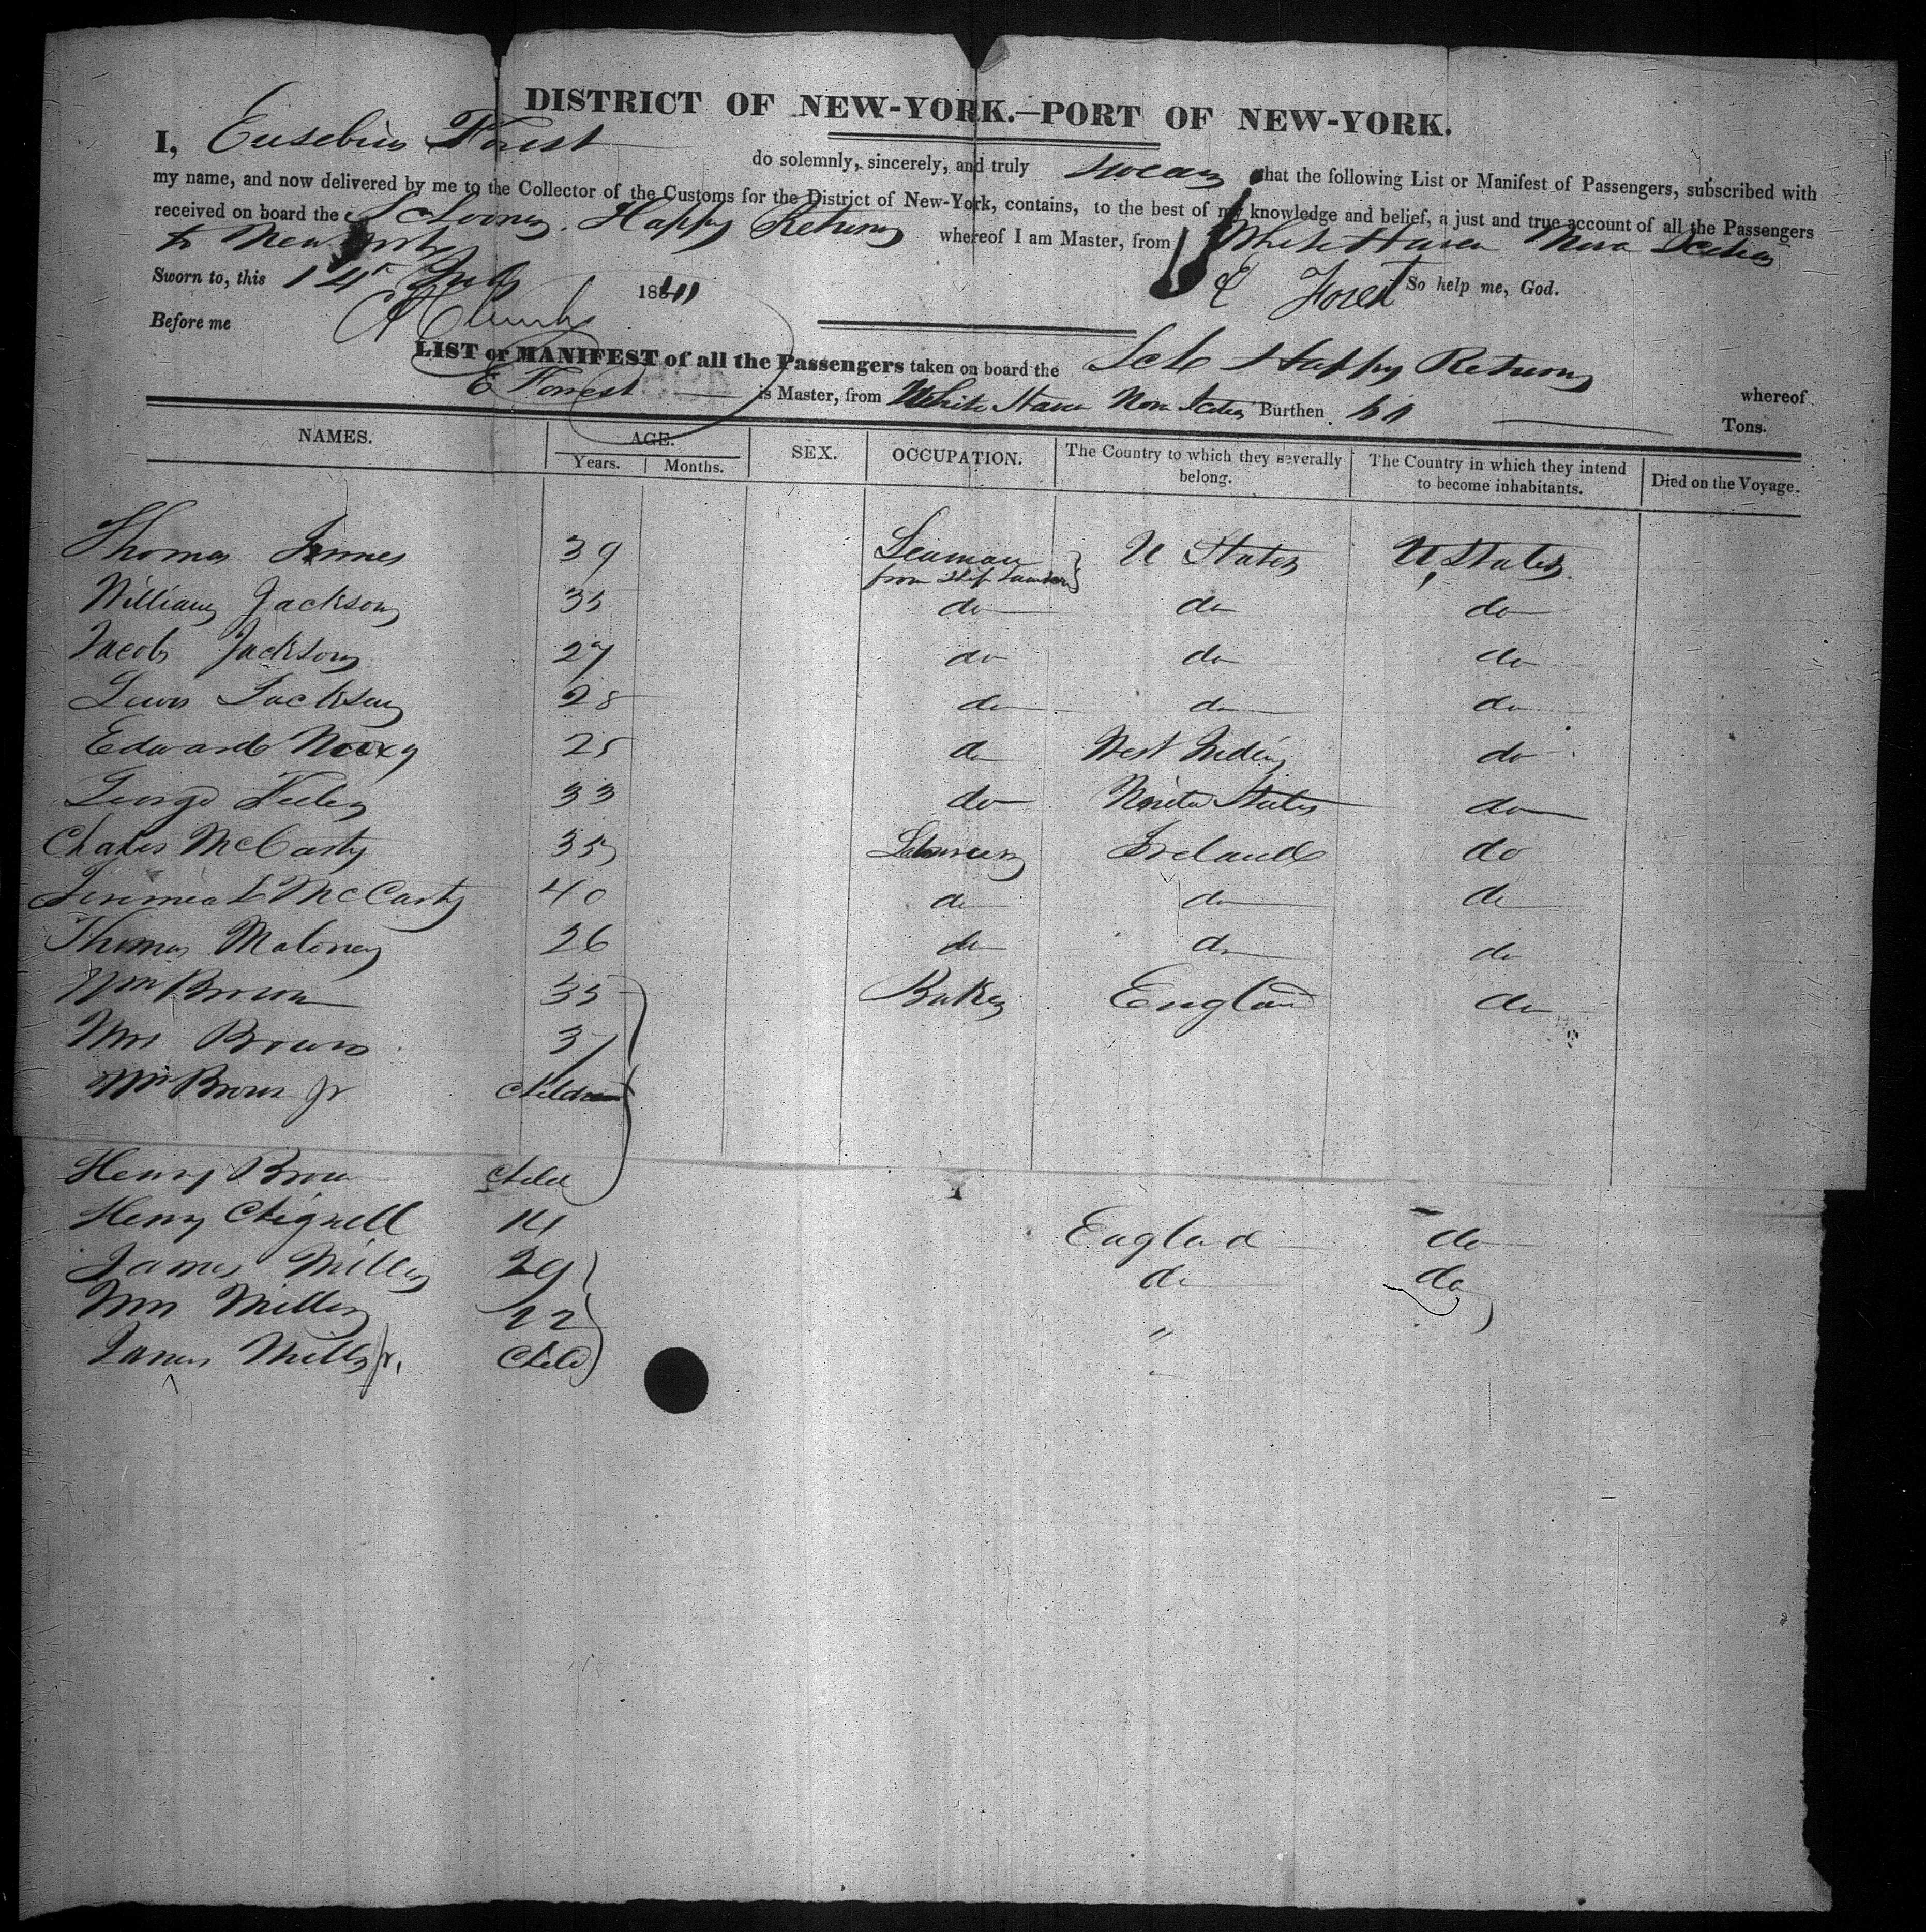 DISTRICT OF NEW-YORK.—PORT OF NEW-YORK.
I, Eusebius Forest do solemnly, sincerely, and truly swear that the following List or Manifest of Passengers, subscribed with
my name, and now delivered by me to the Collector of the Customs for the District of New-York, contains, to the best of my knowledge and belief, a just and true account of all the Passengers
received on board the Schooner Happy Return whereof I am Master, from White Haven Nova Scotia
to New York
Sworn to, this 14th July 1841 E Forest So help me, God.
Before me
LIST or MANIFEST of all the Passengers taken on board the Sch Happy Return whereof
E Forrest is Master, from White Haven Nova Scotia Burthen Tons.
NAMES. AGE. SEX. OCCUPATION. The Country to which they severally belong. The Country in which they intend to become inhabitants. Died on the Voyage.
Years. Months.
Thomas 39 Seaman U States U States
from Ship
William Jackson 35 do do do
Jacob Jackson 27 do do do
Lewis Jackson 28 do do do
Edward 25 do West Indies do
George 33 do United States do
Charles McCarty 35 Labourer Ireland do
Jeremiah McCarty 40 do do do
Thomas Maloney 26 do do do
Wm Brown 35 Baker England do
Mrs Brown 37
Wm Brown Jr Children
Henry Brown Child
Henry Chignell 14 England do
James Miller 29 do do
Mrs Miller 22 "
James Miller Jr. Child "